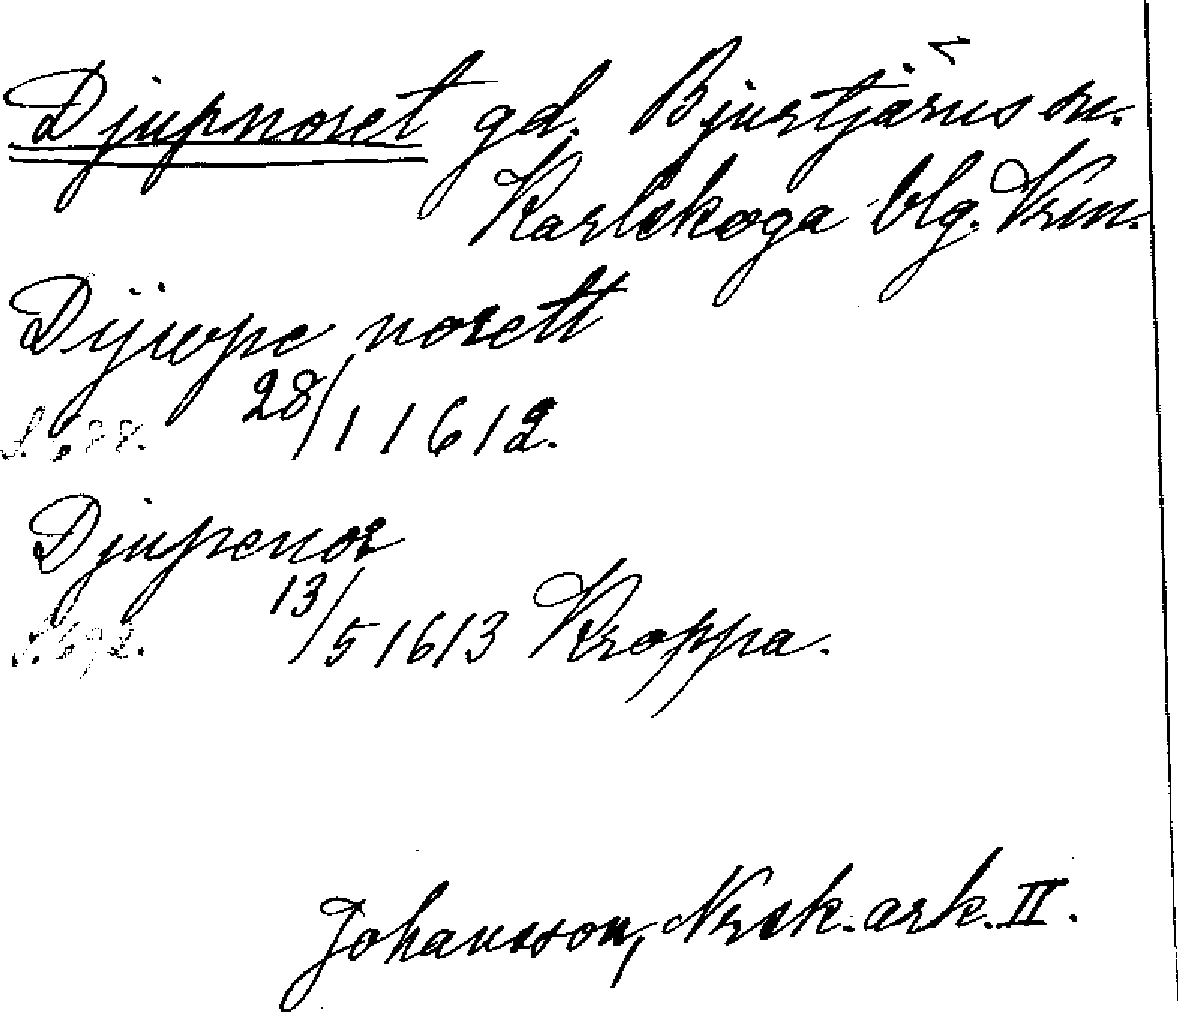 Djupnoret gd. Bjurtjärns sn.
Karlskoga blg. Vrm.
Dijwpe norett
28/1 1612.
Djupenor
S. 692. 13/5 1613 Kroppa.
Johansson, Nrsk. ark. II.